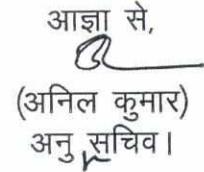 आज्ञा से,
(अनिल कुमार)
अनु सचिव।